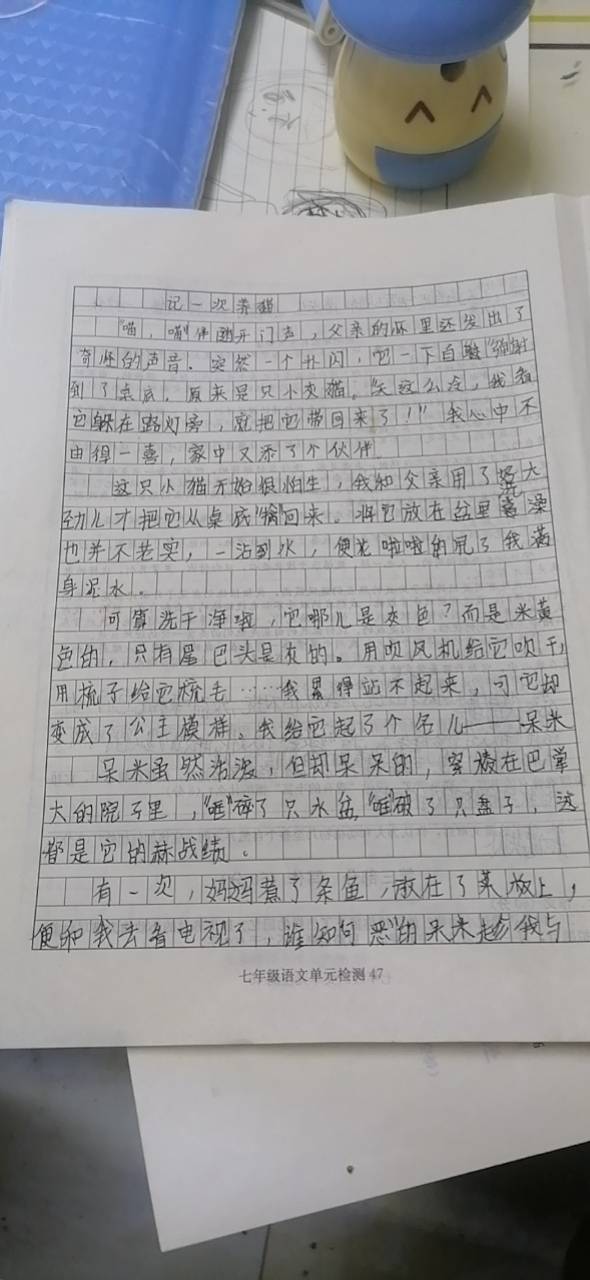 记一次养猫
"喵,喵"伴随开门声,父亲的怀里还发出了
奇怪的声音.突然一个扑闪,它一下自
到了桌底,原来是只小灰猫。"天这么冷,我看
它躲在路灯旁,就把它带回来了!"我心中不
由得一喜,家中又添了个伙伴
这只小猫开始很怕生,我和父亲用了好大
劲儿才把它从桌底"擒"回来。将它放在盆里洗澡
也并不老实,一沾到水,便花啦啦的甩了我满
身泥水.
可算洗干净啦,它哪儿是灰色?而是米黄
色的,只有尾巴头是灰的。用吹风机给它吹干,
用梳子给它梳毛……我累得站不起来,可它却
变成了公主模样。我给它起了个名儿——呆米
呆米虽然活泼,但却呆呆的,穿梭在巴掌
大的院子里,"碎了只水盆,破了只盘子,这
都是它的赫战绩。
有一次,妈妈煮了条鱼,放在了菜板上,
便和我去看电视了,谁知可恶的呆米趁我与
七年级语文单元检测 47